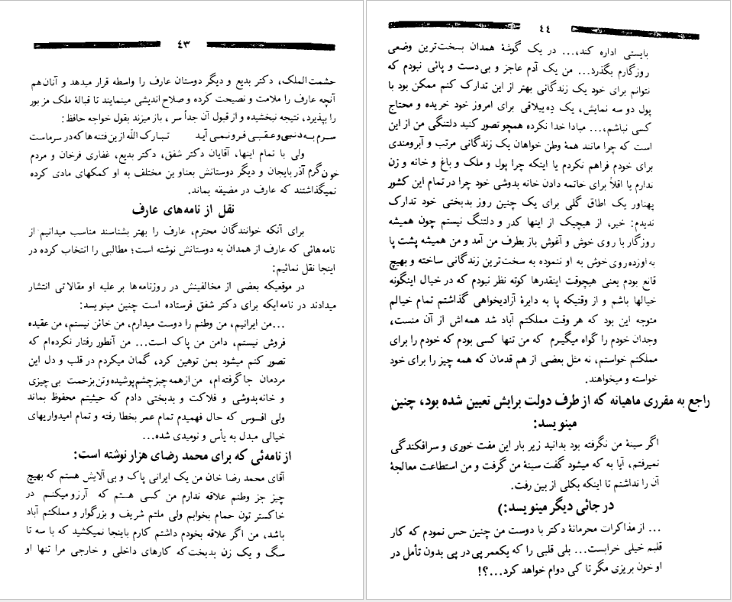 ۴۳
حشمت‌الملک، دکتر بدیع و دیگر دوستان عارف را واسطه قرار میدهد و آنان هم
آنچه عارف را ملامت و نصیحت کرده و صلاح اندیشی مینمایند تا قبالهٔ ملک مزبور
را بپذیرد، نتیجه نبخشیده و از قبول آن جداً سر، باز میزند بقول خواجه حافظ:
سرم بدنیی و عقبی فرو نمی آید تبارک الله از این فتنه ها که در سر ماست
ولی با تمام اینها، آقایان دکتر شفق، دکتر بدیع، غفاری فرخان و مردم
خون گرم آذربایجان و دیگر دوستانش بعناوین مختلف به او کمکهای مادی کرده
نمیگذاشتند که عارف در مضیقه بماند.
نقل از نامه‌های عارف
برای آنکه خوانندگان محترم، عارف را بهتر بشناسند مناسب میدانیم از
نامه‌هائی که عارف از همدان به دوستانش نوشته است؛ مطالبی را انتخاب کرده در
اینجا نقل نمائیم:
در موقعیکه بعضی از مخالفینش در روزنامه‌ها بر علیه او مقالاتی انتشار
میدادند در نامه‌ایکه برای دکتر شفق فرستاده است چنین مینویسد:
...من ایرانیم، من وطنم را دوست میدارم، من خائن نیستم، من عقیده
فروش نیستم، دامن من پاک است... من آنطور رفتار نکرده‌ام که
تصور کنم میشود بمن توهین کرد، گمان میکردم در قلب و دل این
مردمان جا گرفته‌ام، من از همه چیز چشم پوشیده وتن بزحمت بی چیزی
و خانه بدوشی و فلاکت و بدبختی دادم که حیثیتم محفوظ بماند
ولی افسوس که حال فهمیدم تمام عمر بخطا رفته و تمام امیدواریهای
خیالی مبدل به یأس و نومیدی شده...
از نامه‌ئی که برای محمد رضای هزار نوشته است:
آقای محمد رضا خان من یک ایرانی پاک و بی آلایش هستم که بهیچ
چیز جز وطنم علاقه ندارم من کسی هستم که آرزو میکنم در
خاکستر تون حمام بخوابم ولی ملتم شریف و بزرگوار و مملکتم آباد
باشد، من اگر علاقه بخودم داشتم کارم باینجا نمیکشید که با سه تا
سگ و یک زن بدبخت که کارهای داخلی و خارجی مرا تنها او
۴۴
بایستی اداره کند،... در یک گوشهٔ همدان بسخت‌ترین وضعی
روزگارم بگذرد... من یک آدم عاجز و بی دست و پائی نبودم که
نتوانم برای خود یک زندگانی بهتر از این تدارک کنم ممکن بود با
پول دو سه نمایش، یک ده ییلاقی برای امروز خود خریده و محتاج
کسی نباشم،... مبادا خدا نکرده همچو تصور کنید دلتنگی من از این
است که چرا مانند همهٔ وطن خواهان یک زندگانی مرتب و آبرومندی
برای خودم فراهم نکردم یا اینکه چرا پول و ملک و باغ و خانه و زن
ندارم یا اقلاً برای خاتمه دادن خانه بدوشی خود چرا در تمام این کشور
پهناور یک اطاق گلی برای یک چنین روز بدبختی خود تدارک
ندیدم: خیر، از هیچیک از اینها کدر و دلتنگ نیستم چون همیشه
روزگار با روی خوش و آغوش باز بطرف من آمد و من همیشه پشت پا
به او زده روی خوش به او ننموده به سخت‌ترین زندگانی ساخته و بهیچ
قانع بودم یعنی هیچوقت اینقدرها کوته نظر نبودم که در خیال اینگونه
خیالها باشم و از وقتیکه پا به دایرهٔ آزادیخواهی گذاشتم تمام خیالم
متوجه این بود که هر وقت مملکتم آباد شد همه‌اش از آن منست،
وجدان خودم را گواه میگیرم که من تنها کسی بودم که خودم را برای
مملکتم خواستم، نه مثل بعضی از هم قدمان که همه چیز را برای خود
خواسته و میخواهند.
راجع به مقرری ماهیانه که از طرف دولت برایش تعیین شده بود، چنین
مینویسد:
اگر سینهٔ من نگرفته بود بدانید زیر بار این مفت خوری و سرافکندگی
نمیرفتم، آیا به که میشود گفت سینهٔ من گرفت و من استطاعت معالجهٔ
آن را نداشتم تا اینکه بکلی از بین رفت.
در جائی دیگر مینویسد:)
... از مذاکرات محرمانهٔ دکتر با دوست من چنین حس نمودم که کار
قلبم خیلی خرابست... بلی قلبی را که یکعمر پی در پی بدون تأمل در
او خون بریزی مگر تا کی دوام خواهد کرد...؟!